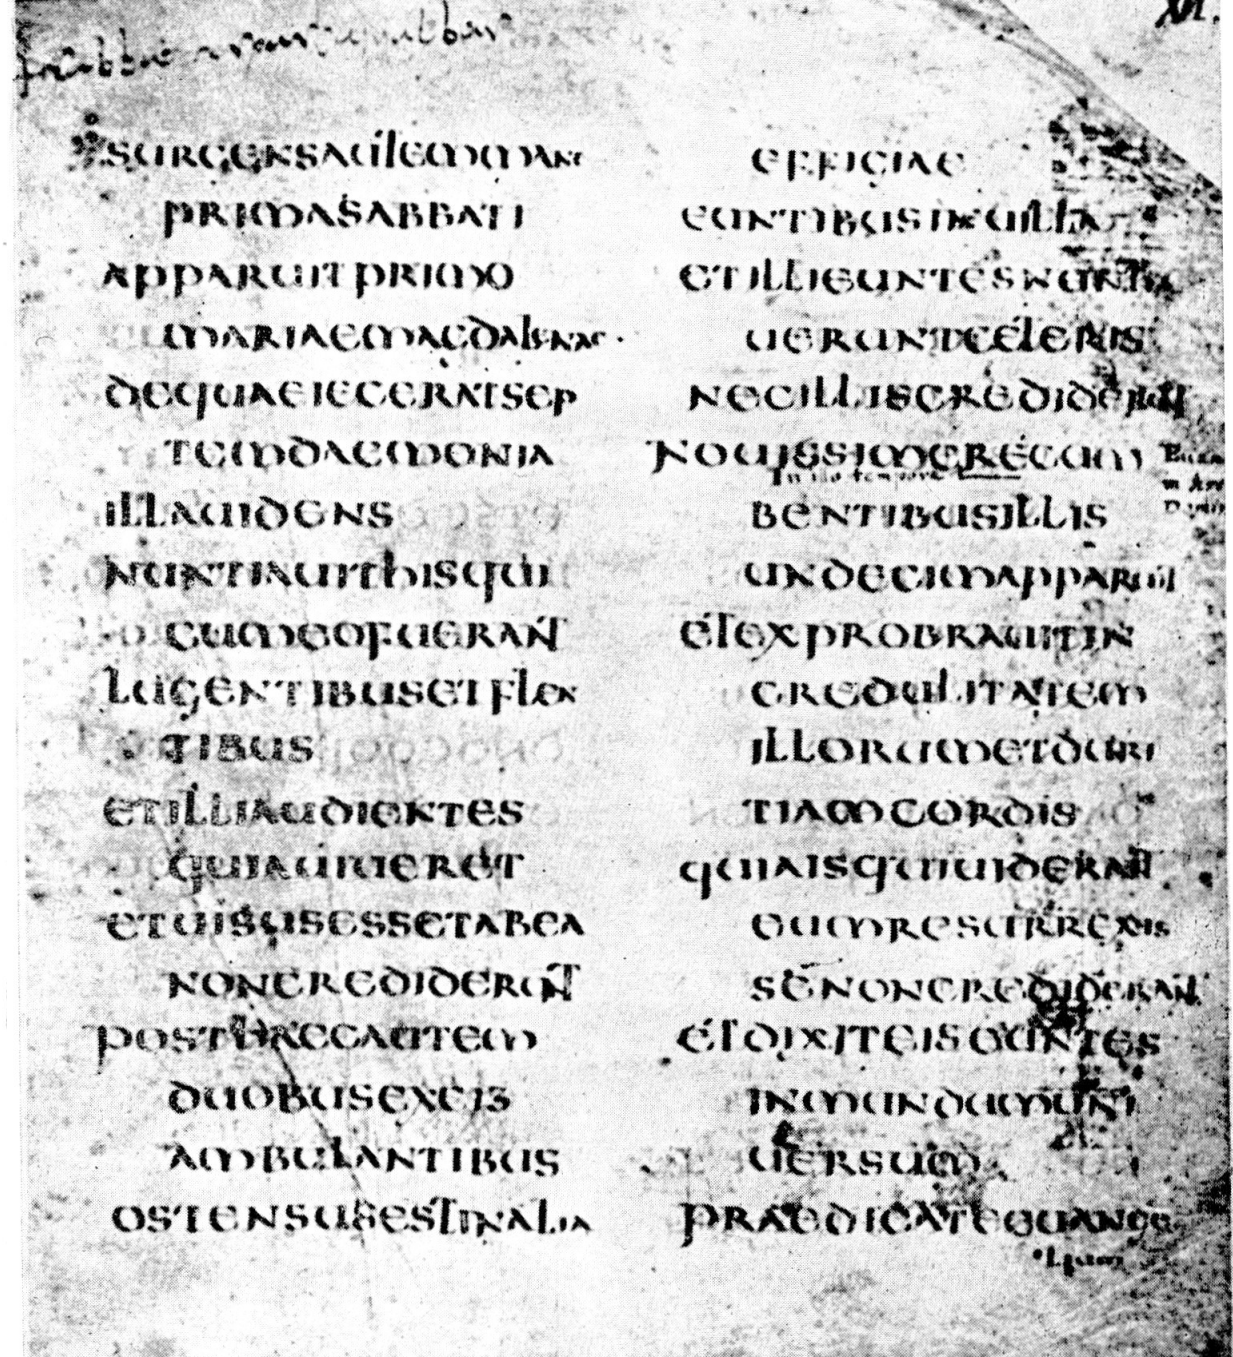 SURGENSAUTEMMANE
PRIMASABBATI
APPARUITPRIMO
MARIAEMAGDALENAE
DEQUAEIECERATSEP
TEMDAEMONIA
ILLAUIDENS
NUNTIAUITHISQUI
CUMEOFUERANT
LUGENTIBUSETFLEN
TIBUS
ETILLIAUDIENTES
QUIAUIUERET
ETUISUSESSETABEA
NONCREDIDERUNT
POSTHAECAUTEM
DUOBUSEXEIS
AMBULANTIBUS
OSTENSUSESTINALIA
EFFIGIAE
EUNTIBUSINUILLA
ETILLIEUNTESNUNTIA
UERUNTCETERIS
NECILLISCREDIDERUNT
NOUISSIMERECUM
In illo tempore
BENTIBUSILLIS
UNDECIMAPPARUIT
ETEXPROBRAUITIN
CREDULITATEM
ILLORUMETDURI
TIAMCORDIS
QUIAISQUIUIDERANT
EUMRESURREXIS
SENONCREDIDERANT
ETDIXITEISEUNTES
INMUNDUMUNI
UERSUM
PRAEDICATEEUANGE